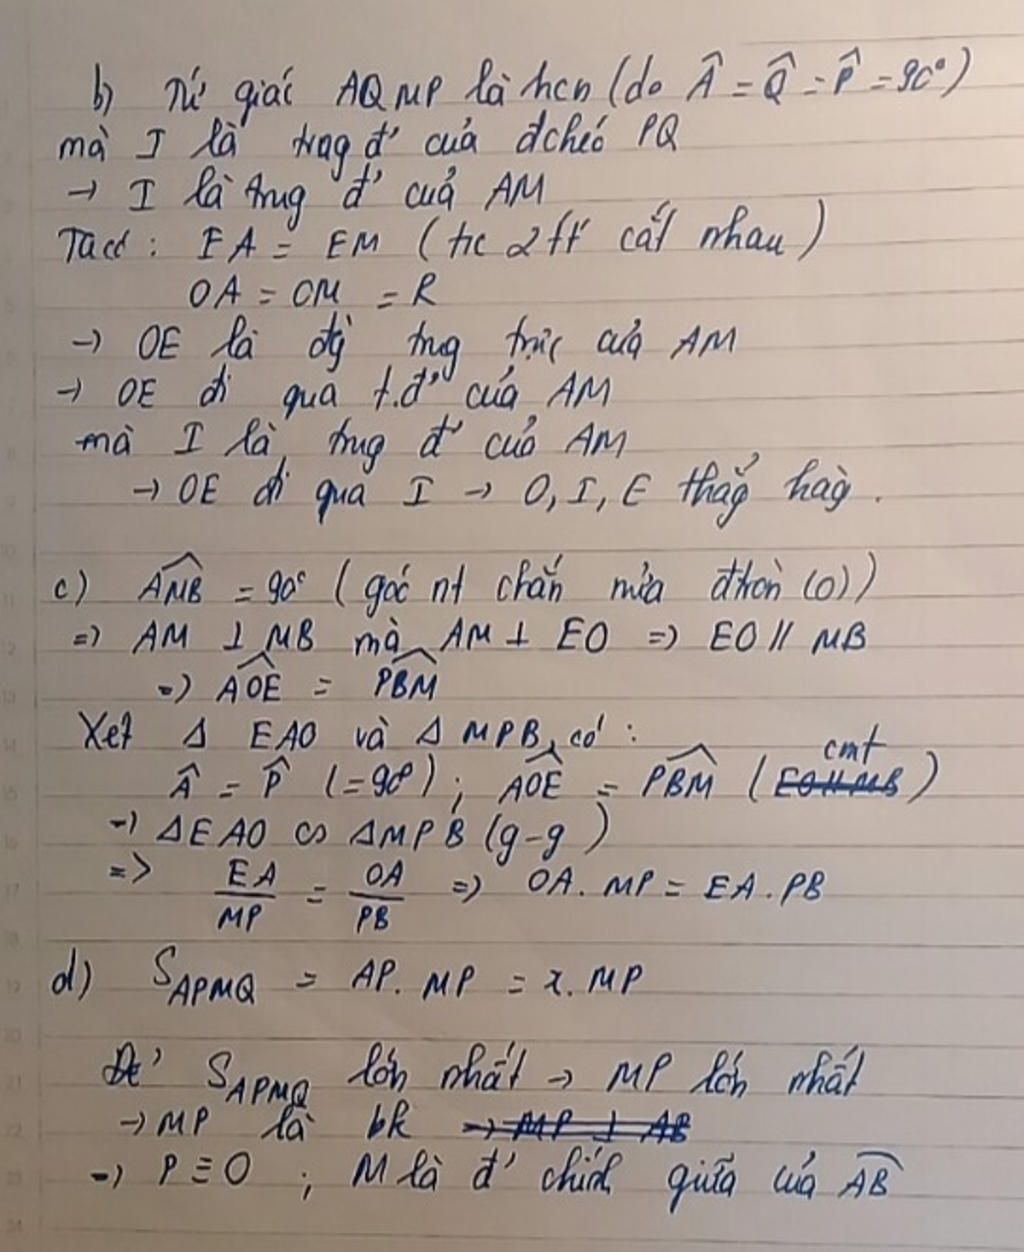 b) Tứ giác AQMP là hcn (do Â = Q̂ = P̂ = 90°)
mà I là trug đ' của đchéo PQ
→ I là trug đ' của AM
Ta có : EA = EM (t/c 2 tt cắt nhau)
OA = OM = R
→ OE là đg trug trực của AM
→ OE đi qua t.đ' của AM
mà I là trug đ' của AM
→ OE đi qua I → O, I, E thẳg hàg.
c) AMB = 90° (góc nt chắn nửa đtròn (O))
=) AM ⊥ MB mà AM ⊥ EO =) EO // MB
=) AOE = PBM
Xét Δ EAO và Δ MPB có :
Â = P̂ (= 90°) ; AOE = PBM (cmt)
→ ΔEAO ∽ ΔMPB (g-g)
=> EA/MP = OA/PB =) OA . MP = EA . PB
d) S_APMQ = AP. MP = x. MP
Để S_APMQ lớn nhất → MP lớn nhất
→ MP là bk → MP ⊥ AB
→ P ≡ O ; M là đ' chính giữa của AB